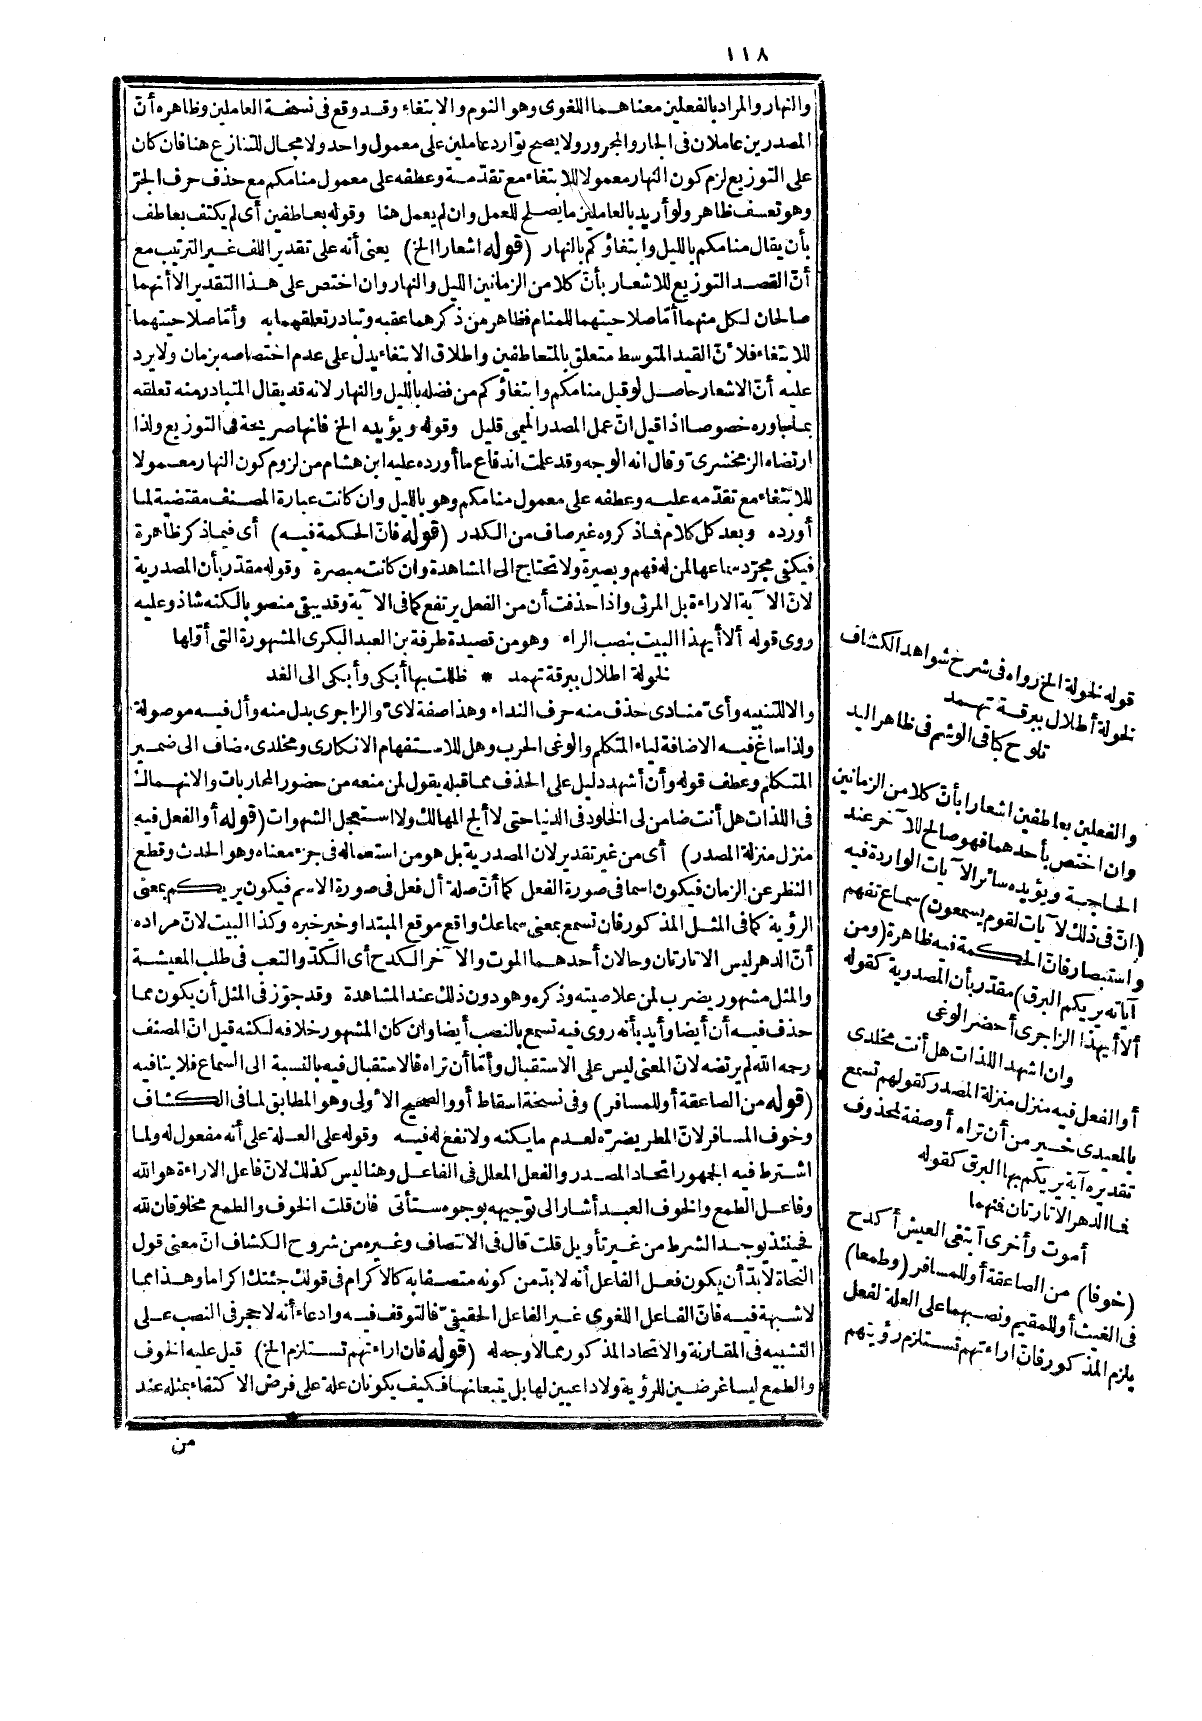 ١١٨
والنهار والمراد بالفعلين معناهما اللغوى وهو النوم والابتغاء وقد وقع فى نسخة العاملين وظاهره أنّ
المصدرين عاملان فى الجار والمجرور ولا يصح توارد عاملين على معمول واحد ولا مجال للتنازع هنا فان كان
على التوزيع لزم كون النهار معمولا للابتغاء مع تقدّمه وعطفه على معمول منامكم مع حذف حرف الجرّ
وهو تعسف ظاهر ولو أريد بالعاملين ما يصلح للعمل وان لم يعمل هنا وقوله بعاطفين أى لم يكتف بعاطف
بأن يقال منامكم بالليل وابتغاؤكم بالنهار (قوله اشعارا الخ) يعنى أنه على تقدير اللف غير الترتيب مع
أنّ القصد التوزيع للاشعار بأنّ كلا من الزمانين الليل والنهار وان اختص على هذا التقدير الا أنهما
صالحان لكل منهما أمّا صلاحيتهما للمنام فظاهر من ذكرهما عقبه وتبادر تعلقهما به وأمّا صلاحيتهما
للابتغاء فلأنّ القيد المتوسط متعلق بالمتعاطفين واطلاق الابتغاء يدل على عدم اختصاصه بزمان ولا يرد
عليه أنّ الاشعار حاصل لو قيل منامكم وابتغاؤكم من فضله بالليل والنهار لانه قد يقال المتبادر منه تعلقه
بما يجاوره خصوصا اذا قيل انّ عمل المصدر الميمى قليل وقوله ويؤيده الخ فانها صريحة فى التوزيع ولذا
ارتضاه الزمخشرىّ وقال انه الوجه وقد علمت اندفاع ما أورده عليه ابن هشام من لزوم كون النهار معمولا
للابتغاء مع تقدّمه عليه وعطفه على معمول منامكم وهو بالليل وان كانت عبارة المصنف مقتضية لما
أورده وبعد كل كلام فماذكروه غير صاف من الكدر (قوله فانّ الحكمة فيه) أى فيما ذكر ظاهرة
فيكفى مجرّد سماعها لمن له فهم وبصيرة ولا تحتاج الى المشاهدة وان كانت مبصرة وقوله مقدّر بأن المصدرية
لانّ الآية الاراءة بل المرئى واذا حذفت أن من الفعل يرتفع كما فى الآية وقد يبقى منصوبا لكنه شاذ وعليه
روى قوله ألا أيهذا البيت بنصب الراء وهو من قصيدة طرفة بن العبد البكرى المشهورة التى أوّلها
لخولة اطلال ببرقة ثهمد * ظللت بها أبكى وأبكى الى الغد
والا للتنبيه وأىّ منادى حذف منه حرف النداء وهذا صفة لاىّ والزاجرى بدل منه وأل فيه موصولة
ولذا ساغ فيه الاضافة لياء المتكلم والوغى الحرب وهل للاستفهام الانكارى ومخلدى مضاف الى ضمير
المتكلم وعطف قوله وأن أشهد دليل على الحذف مما قبله يقول لمن منعه من حضور المحاربات والانهماك
فى اللذات هل أنت ضامن لى الخلود فى الدنيا حتى لا ألج المهالك ولا استعجل الشهوات (قوله أو الفعل فيه
منزل منزلة المصدر) أى من غير تقدير لان المصدرية بل هو من استعماله فى جزء معناه وهو الحدث وقطع
النظر عن الزمان فيكون اسما فى صورة الفعل كما أنّ صلة أل فعل فى صورة الاسم فيكون يريكم بمعنى
الرؤية كما فى المثل المذكور فان تسمع بمعنى سماعك واقع موقع المبتدا وخير خبره وكذا البيت لانّ مراده
أنّ الدهر ليس الا تارتان وحالان أحدهما الموت والآخر الكدح أى الكدّ والتعب فى طلب المعيشة
والمثل مشهور يضرب لمن علا صيته وذكره وهو دون ذلك عند المشاهدة وقد جوّز فى المثل أن يكون مما
حذف فيه أن أيضا وأيد بأنه روى فيه تسمع بالنصب أيضا وان كان المشهور خلافه لكنه قيل انّ المصنف
رحمه الله لم يرتضه لانّ المعنى ليس على الاستقبال وأمّا أن تراه فالاستقبال فيه بالنسبة الى السماع فلا ينافيه
(قوله من الصاعقة أو للمسافر) وفى نسخة اسقاط أو والصحيح الأولى وهو المطابق لما فى الكشاف
وخوف المسافر لانّ المطر يضرّه لعدم ما يكنه ولا نفع له فيه وقوله على العلة على أنه مفعول له ولما
اشترط فيه الجمهور اتحاد المصدر والفعل المعلل فى الفاعل وهنا ليس كذلك لانّ فاعل الاراءة هو الله
وفاعل الطمع والخوف العبد أشار الى توجيهه بوجوه ستأتى فان قلت الخوف والطمع مخلوقان لله
فحينئذ يوجد الشرط من غير تأويل قلت قال فى الانتصاف وغيره من شروح الكشاف انّ معنى قول
النحاة لا بدّ أن يكون فعل الفاعل أنه لا بدّ من كونه متصفا به كالاكرام فى قولك جئتك اكراما وهذا مما
لا شبهة فيه فانّ الفاعل اللغوى غير الفاعل الحقيقىّ فالتوقف فيه وادعاء أنه لا حجر فى النصب على
التشبيه فى المقارنة والاتحاد المذكور مما لا وجه له (قوله فان اراءتهم تستلزم الخ) قيل عليه الخوف
والطمع ليسا غرضين للرؤية ولا داعيين لها بل يتبعانها فكيف يكونان علة على فرض الاكتفاء بمثله عند
من
قوله لخولة الخ رواه فى شرح شواهد الكشاف
لخولة أطلال ببرقة ثهمد
تلوح كباقى الوشم فى ظاهر اليد
والفعلين بعاطفين اشعارا بأنّ كلا من الزمانين
وان اختص بأحدهما فهو صالح للآخر عند
الحاجة ويؤيده سائر الآيات الواردة فيه
(انّ فى ذلك لآيات لقوم يسمعون) سماع تفهم
واستبصار فانّ الحكمة فيه ظاهرة (ومن
آياته يريكم البرق) مقدّر بأن المصدرية كقوله
ألا أيهذا الزاجرى أحضر الوغى
وان اشهد اللذات هل أنت مخلدى
أو الفعل فيه منزل منزلة المصدر كقولهم تسمع
بالمعيدى خير من أن تراه أو صفة لمحذوف
تقديره آية يريكم بها البرق كقوله
فما الدهر الا تارتان فنهما
أموت وأخرى أبتغى العيش أكدح
(خوفا) من الصاعقة أو للمسافر (وطمعا)
فى الغيث أو للمقيم ونصبهما على العلة لفعل
يلزم المذكور فانّ اراءتهم تستلزم رؤيتهم